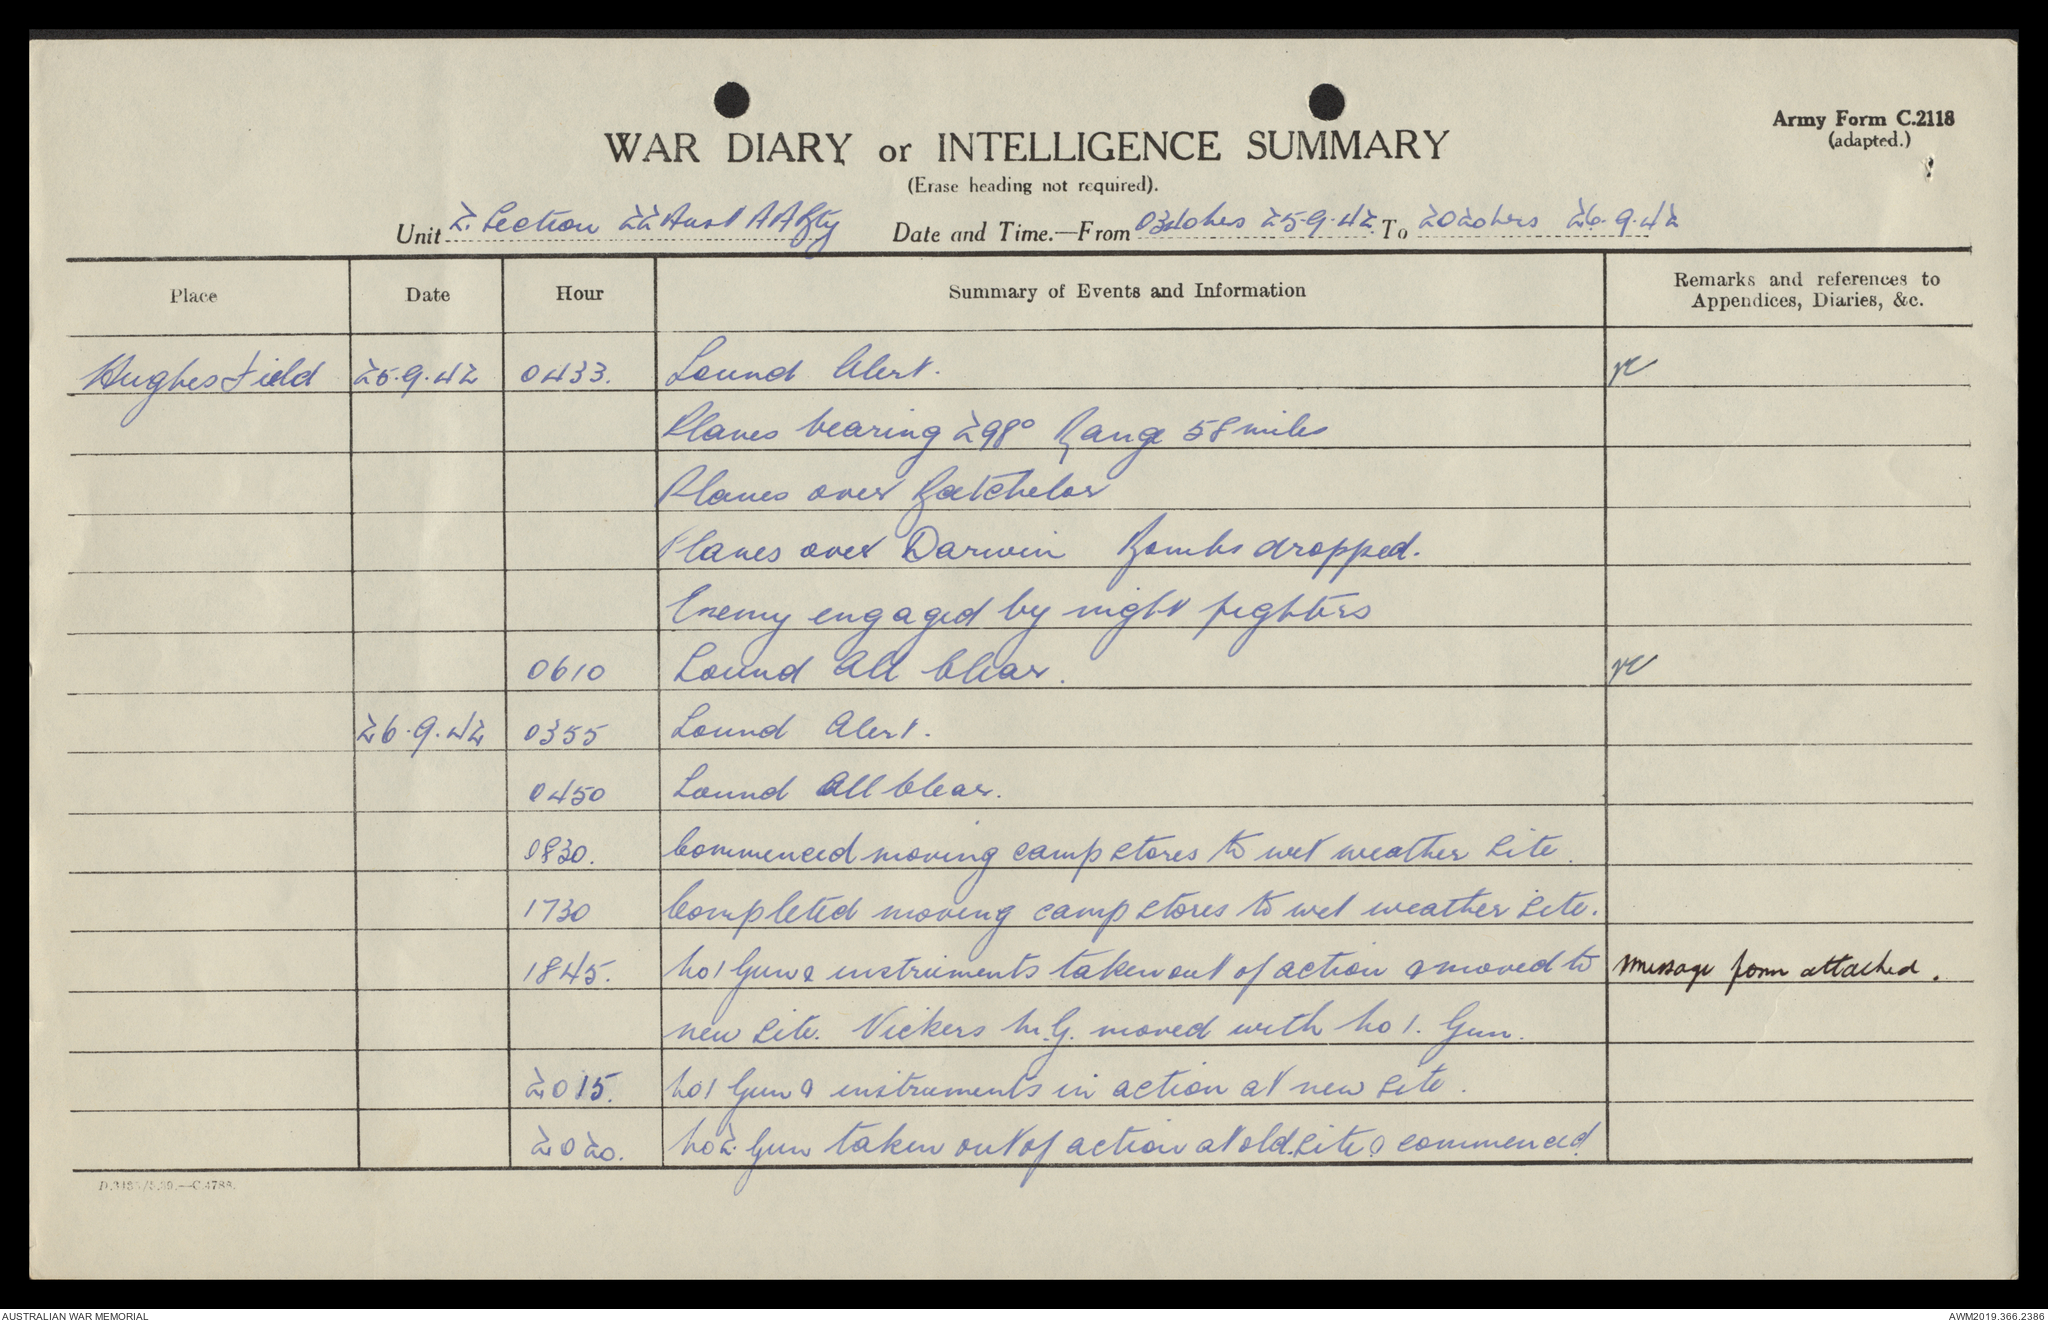 Army Form C.2118
(adapted.)
WAR DIARY or INTELLIGENCE SUMMARY
(Erase heading not required).
Unit 2. Section 22 Aust AA Bty Date and Time.—From hrs 25.9.42. To 2020 hrs 26.9.42
Place Date Hour Summary of Events and Information Remarks and references to
Appendices, Diaries, &c.
Hughes Field 25.9.42 0433. Sound Alert.
Planes bearing 298° Range 58 miles
Planes over Batchelor
Planes over Darwin Bombs dropped.
Enemy engaged by night fighters
0610 Sound All Clear.
26.9.42 0355 Sound Alert.
0450 Sound All Clear.
0830. Commenced moving camp stores to wet weather site.
1730 Completed moving camp stores to wet weather site.
1845. No1 Gun & instruments taken out of action & moved to message form attached.
new site. Vickers M.G. moved with No 1. Gun.
2015. No1 Gun & instruments in action at new site.
2020. No2. Gun taken out of action at old site & commenced
AUSTRALIAN WAR MEMORIAL
AWM2019.366.2386